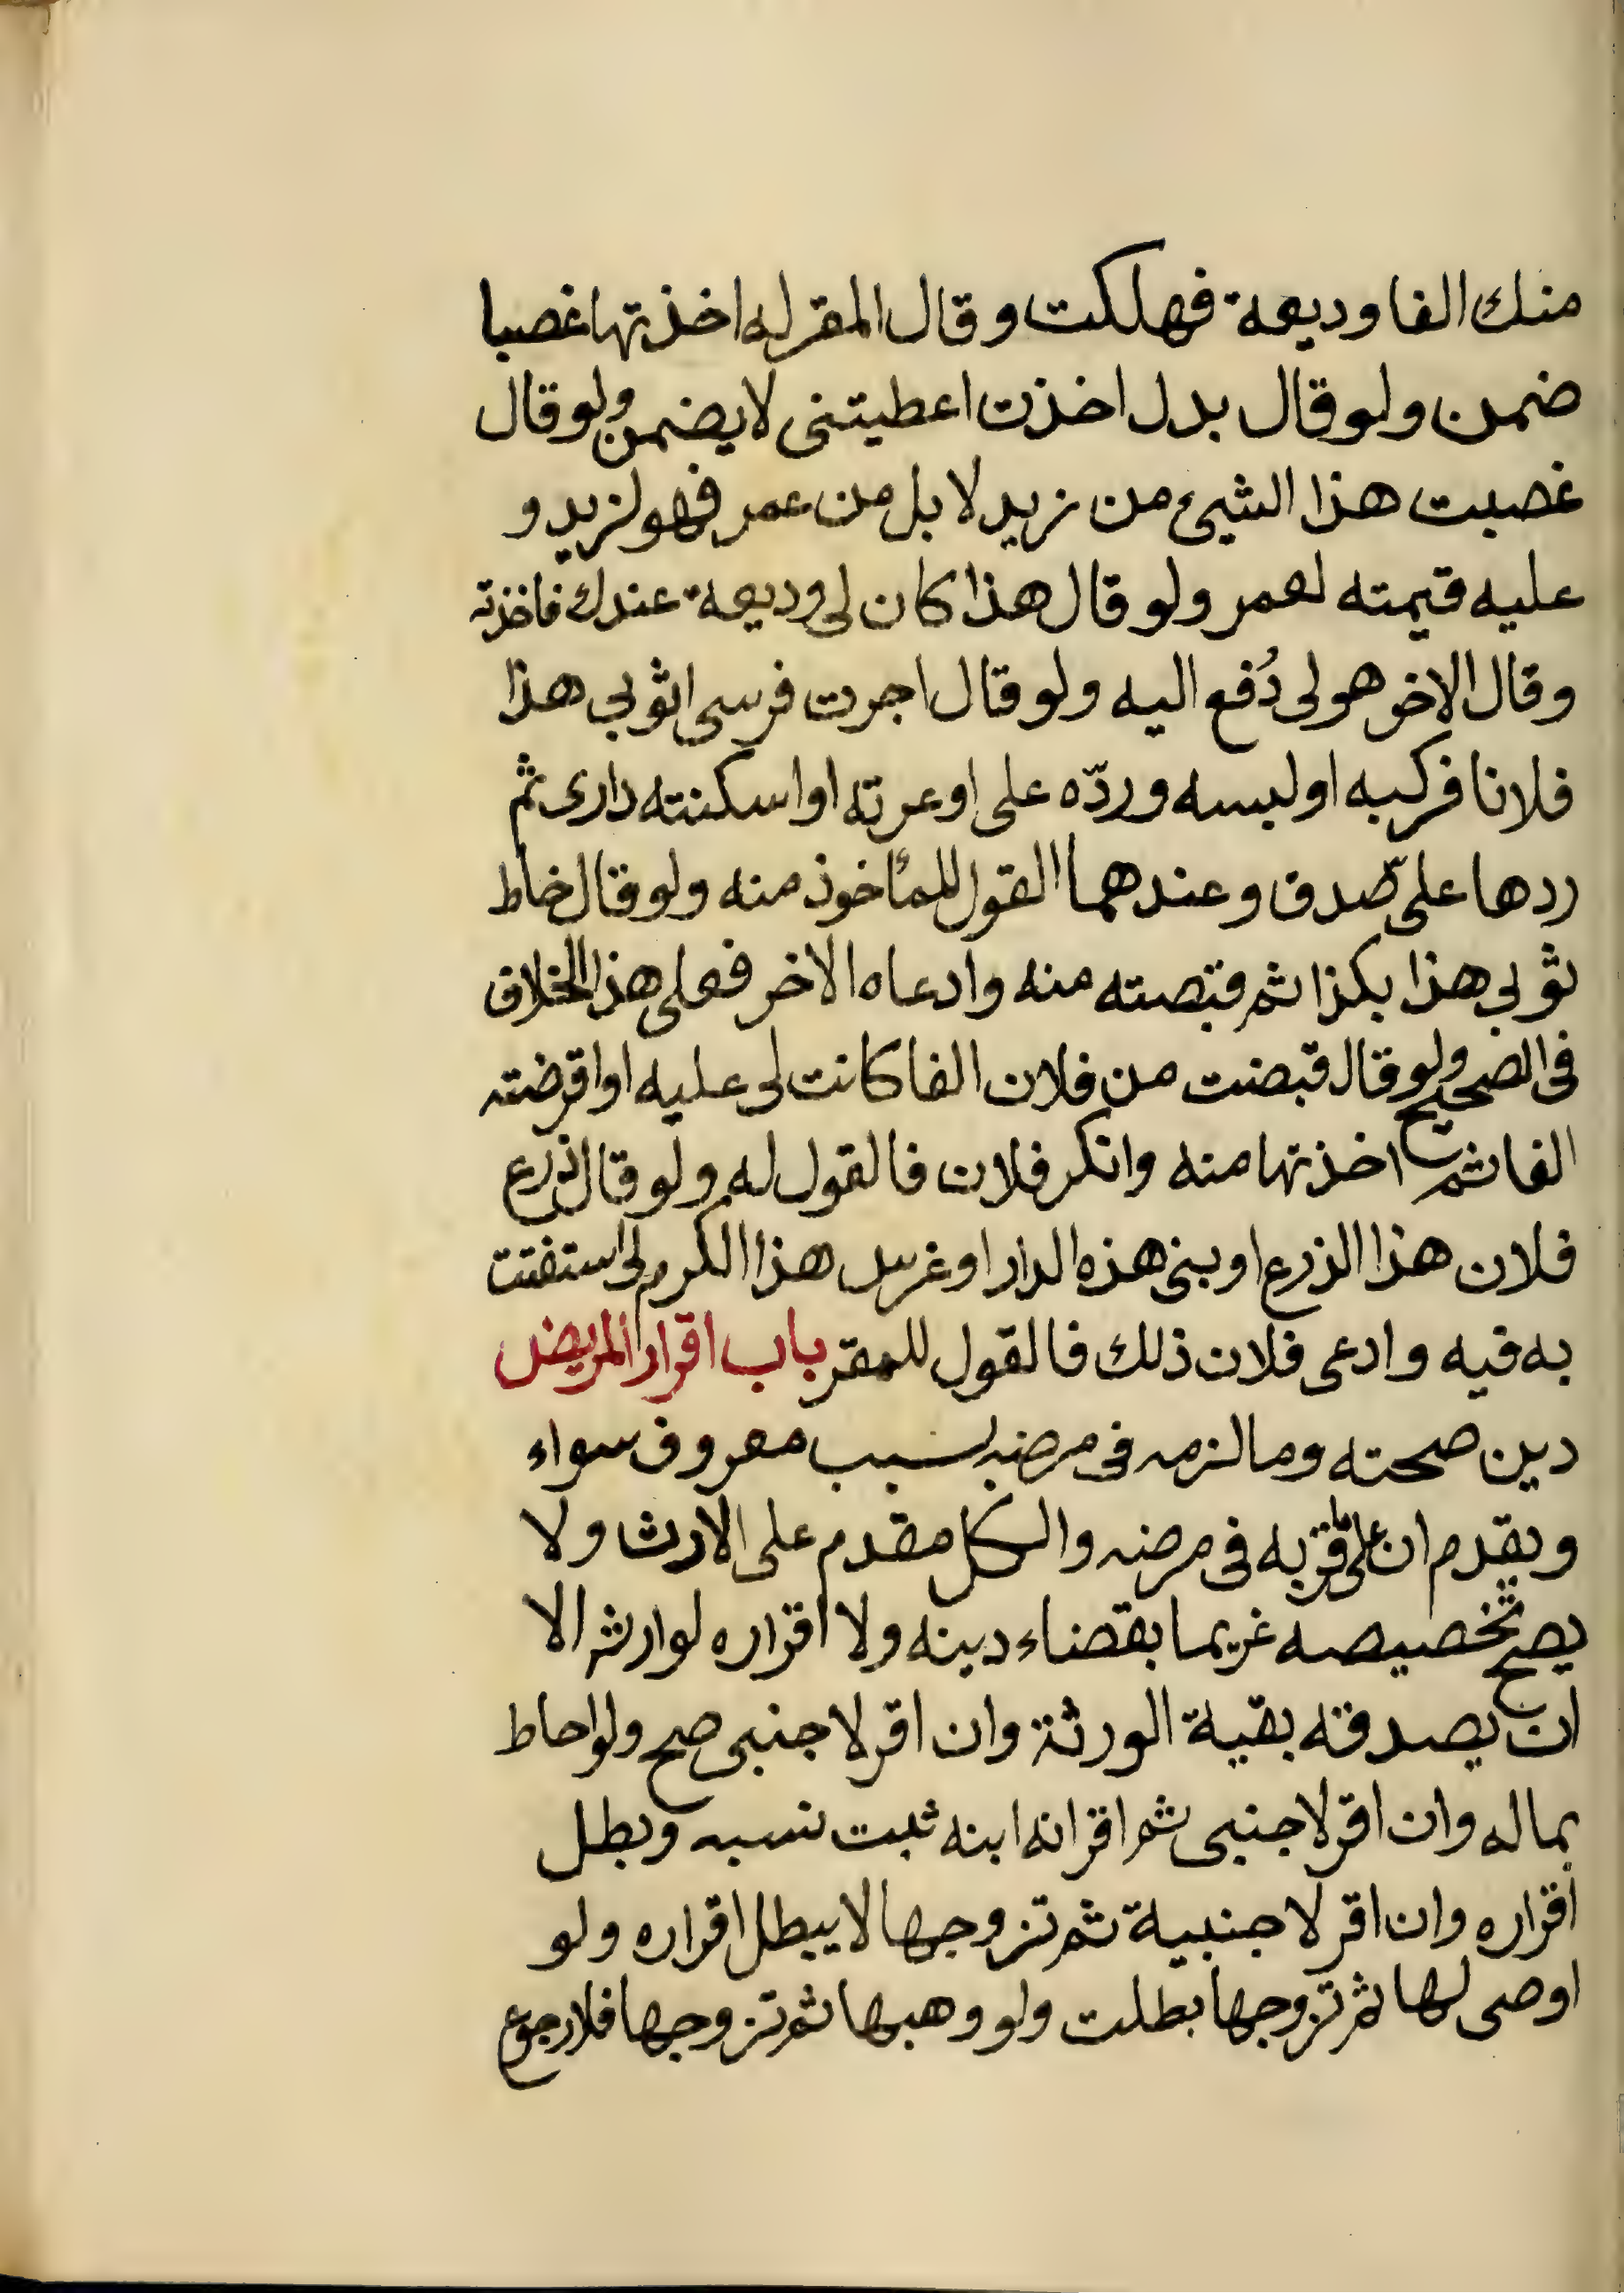 منك الفا وديعة فهلكت وقال المقر له اخذتها غصبا
ضمن ولو قال بدل اخذت اعطيتنى لا يضمن ولو قال
غصبت هذا الشيئ من زيد لا بل من عمر فهو لزيد و
عليه قيمته لعمر ولو قال هذا كان لى وديعة عندك فاخذته
وقال الاخر هو لى دُفع اليه ولو قال اجرت فرسى اثوبي هذا
فلانا فركبه او لبسه وردّه على او عرته او اسكنته دارى ثم
ردها على صدق وعندهما القول للمأخوذ منه ولو قال خاط
ثوبي هذا بكذا ثم قبضته منه وادعاه الاخر فعلى هذا الخلاف
فى الصحيح ولو قال قبضت من فلان الفا كانت لى عليه او اقرضته
الفا ثم اخذتها منه وانكر فلان فالقول له ولو قال زرع
فلان هذا الزرع او بنى هذه الدار او غرس هذا الكرم لى استفتت
به فيه وادعى فلان ذلك فالقول للمقر باب اقرار المريض
دين صحته وما لزمه فى مرضه بسبب معروف سواء
ويقدمان على ما اقر به فى مرضه والكل مقدم على الارث ولا
يصح تخصيصه غريما بقضاء دينه ولا اقراره لوارثه الا
ان يصدقه بقية الورثة وان اقر لاجنبى صح ولو احاط
بماله وان اقر لاجنبى ثم اقر انه ابنه ثبت نسبه وبطل
اقراره وان اقر لاجنبية ثم تزوجها لا يبطل اقراره ولو
اوصى لها ثم تزوجها بطلت ولو وهبها ثم تزوجها فلا رجوع